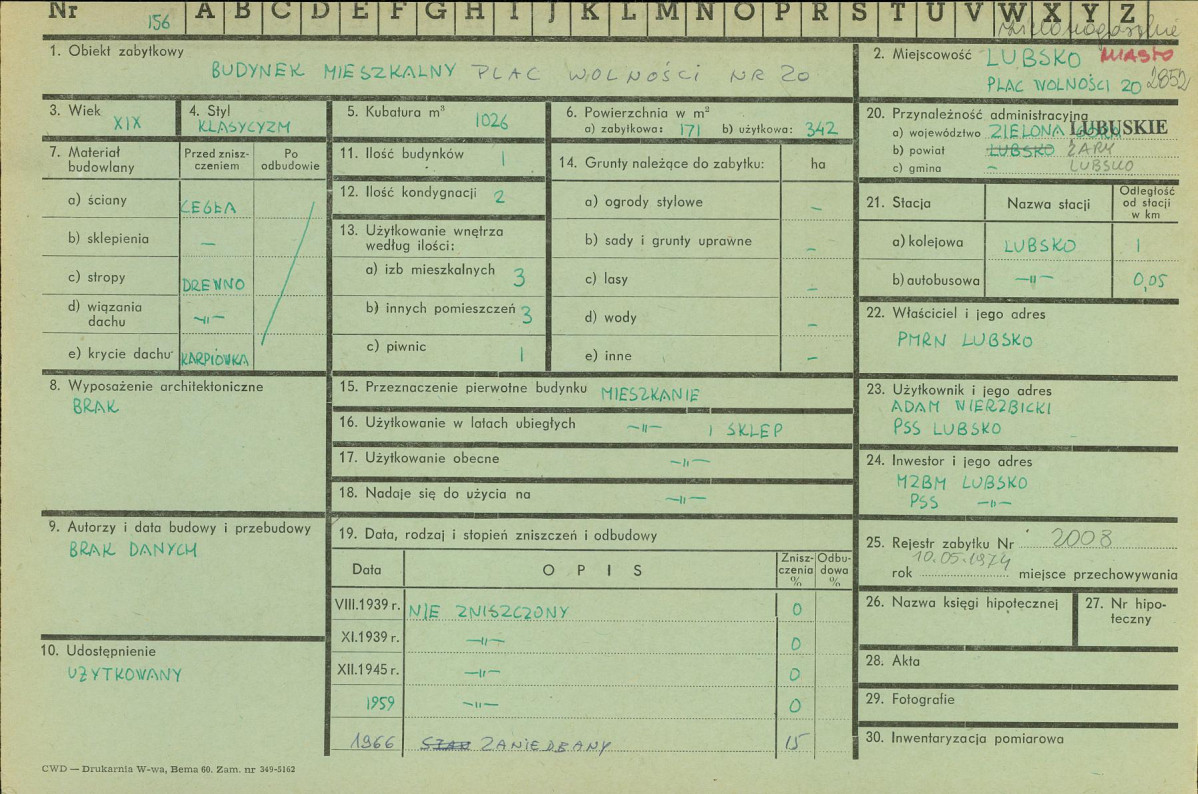 Nr 156 A B C D E F G H I J K L M N O P R S T U V W X Y Z
1. Obiekt zabytkowy
BUDYNEK MIESZKALNY PLAC WOLNOŚCI NR 20
2. Miejscowość LUBSKO MIASTO
PLAC WOLNOŚCI 20 2852
3. Wiek XIX
4. Styl KLASYCYZM
5. Kubatura m³ 1026
6. Powierzchnia w m²
a) zabytkowa: 171 b) użytkowa: 342
7. Materiał budowlany
Przed zniszczeniem
Po odbudowie
a) ściany CEGŁA
b) sklepienia —
c) stropy DREWNO
d) wiązania dachu —"—
e) krycie dachu KARPIÓWKA
8. Wyposażenie architektoniczne
BRAK
9. Autorzy i data budowy i przebudowy
BRAK DANYCH
10. Udostępnienie
UŻYTKOWANY
11. Ilość budynków 1
12. Ilość kondygnacji 2
13. Użytkowanie wnętrza
według ilości:
a) izb mieszkalnych 3
b) innych pomieszczeń 3
c) piwnic 1
14. Grunty należące do zabytku: ha
a) ogrody stylowe —
b) sady i grunty uprawne —
c) lasy —
d) wody —
e) inne —
15. Przeznaczenie pierwotne budynku MIESZKANIE
16. Użytkowanie w latach ubiegłych —"— I SKLEP
17. Użytkowanie obecne —"—
18. Nadaje się do użycia na —"—
19. Data, rodzaj i stopień zniszczeń i odbudowy
Data OPIS Zniszczenia % Odbudowa %
VIII.1939 r. NIE ZNISZCZONY 0
XI.1939 r. —"— 0
XII.1945 r. —"— 0
1959 —"— 0
1966 ZANIEDBANY 15
20. Przynależność administracyjna
a) województwo ZIELONA LUBUSKIE
b) powiat LUBSKO ŻARY
c) gmina — LUBSKO
21. Stacja Nazwa stacji Odległość od stacji w km
a) kolejowa LUBSKO 1
b) autobusowa —"— 0,05
22. Właściciel i jego adres
PMRN LUBSKO
23. Użytkownik i jego adres
ADAM WIERZBICKI
PSS LUBSKO
24. Inwestor i jego adres
MZBM LUBSKO
PSS —"—
25. Rejestr zabytku Nr 2008
rok 10.05.1974 miejsce przechowywania
26. Nazwa księgi hipotecznej
27. Nr hipoteczny
28. Akta
29. Fotografie
30. Inwentaryzacja pomiarowa
CWD — Drukarnia W-wa, Bema 60. Zam. nr 349-5162